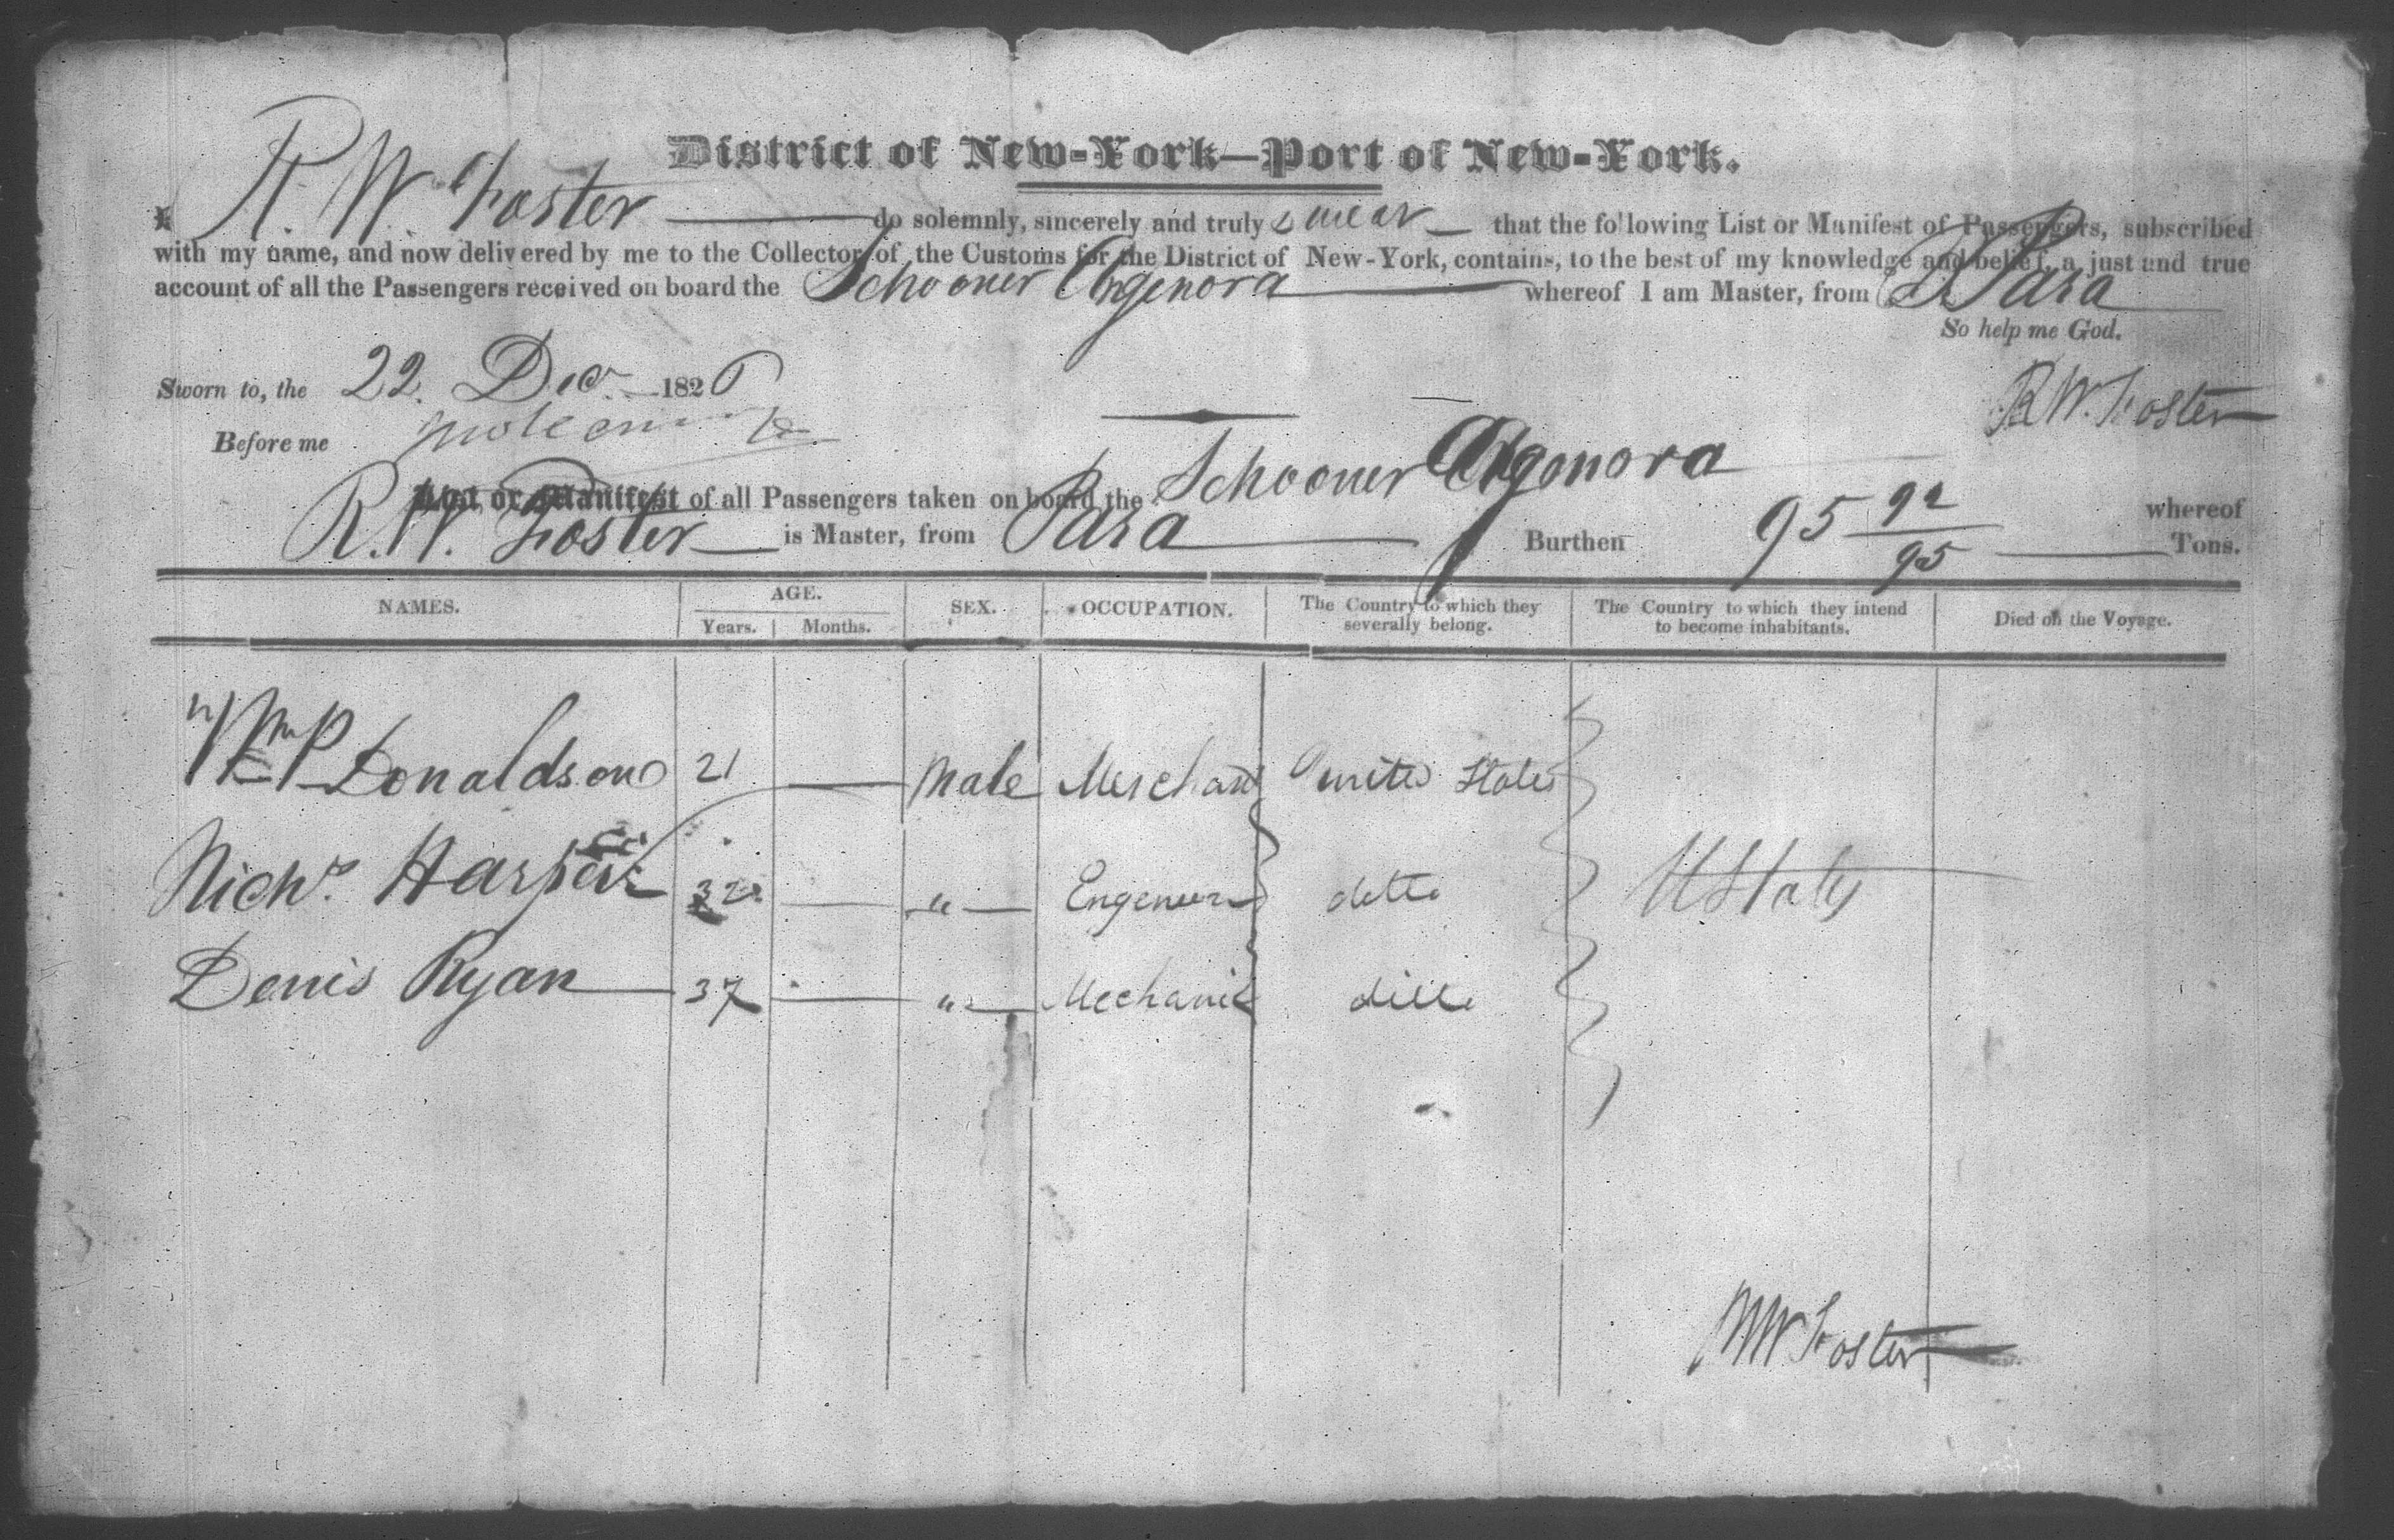 District of New-York—Port of New-York.
I R. W. Foster do solemnly, sincerely and truly swear that the following List or Manifest of Passengers, subscribed
with my name, and now delivered by me to the Collector of the Customs for the District of New-York, contains, to the best of my knowledge and belief, a just and true
account of all the Passengers received on board the Schooner Agenora whereof I am Master, from Para
So help me God.
Sworn to, the 22. Decr 1826
R W. Foster
Before me
List or Manifest of all Passengers taken on board the Schooner Agenora whereof
R. W. Foster is Master, from Para Burthen 95 92/95 Tons.
NAMES. AGE. Years. Months. SEX. OCCUPATION. The Country to which they severally belong. The Country to which they intend to become inhabitants. Died on the Voyage.
Wm P Donaldson 21 — Male Merchant United States
Nichs. Harper 32 — " — Engeneer ditto U States
Denis Ryan 37 — " — Mechanic ditto
R W Foster